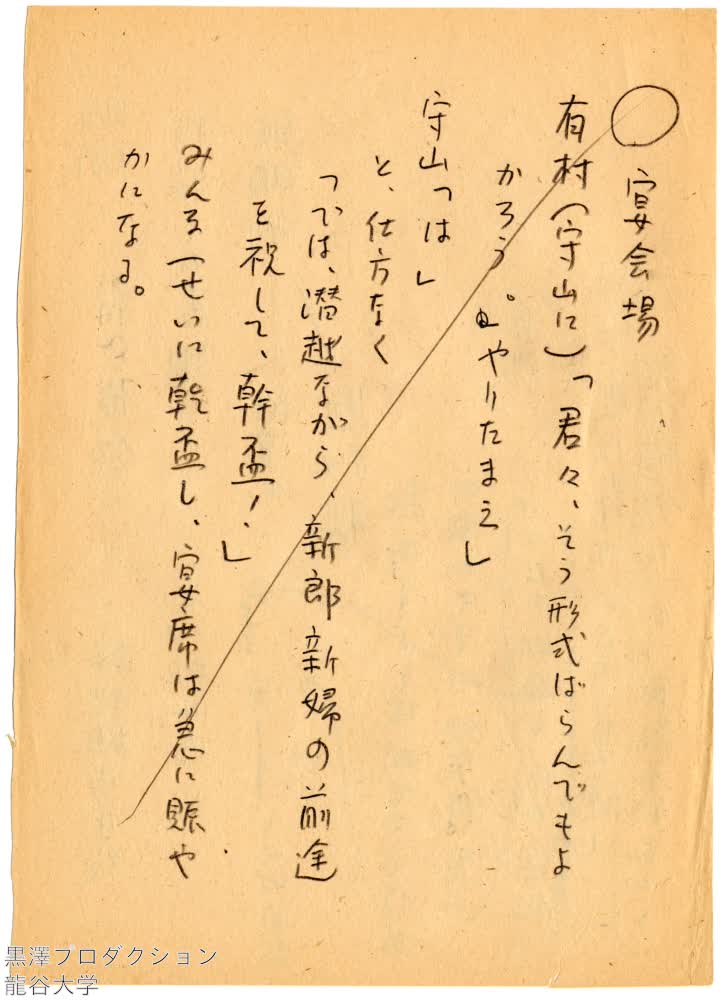 ○ 宴会場
有村(守山に)「君々、そう形式ばらんでもよ
かろう。やりたまえ」
守山「は」
と、仕方なく
「では、潜越ながら、新郎新婦の前途
を祝して、幹盃!」
みんな一せいに乾盃し、宴席は急に賑や
かになる。
黒澤プロダクション
龍谷大学